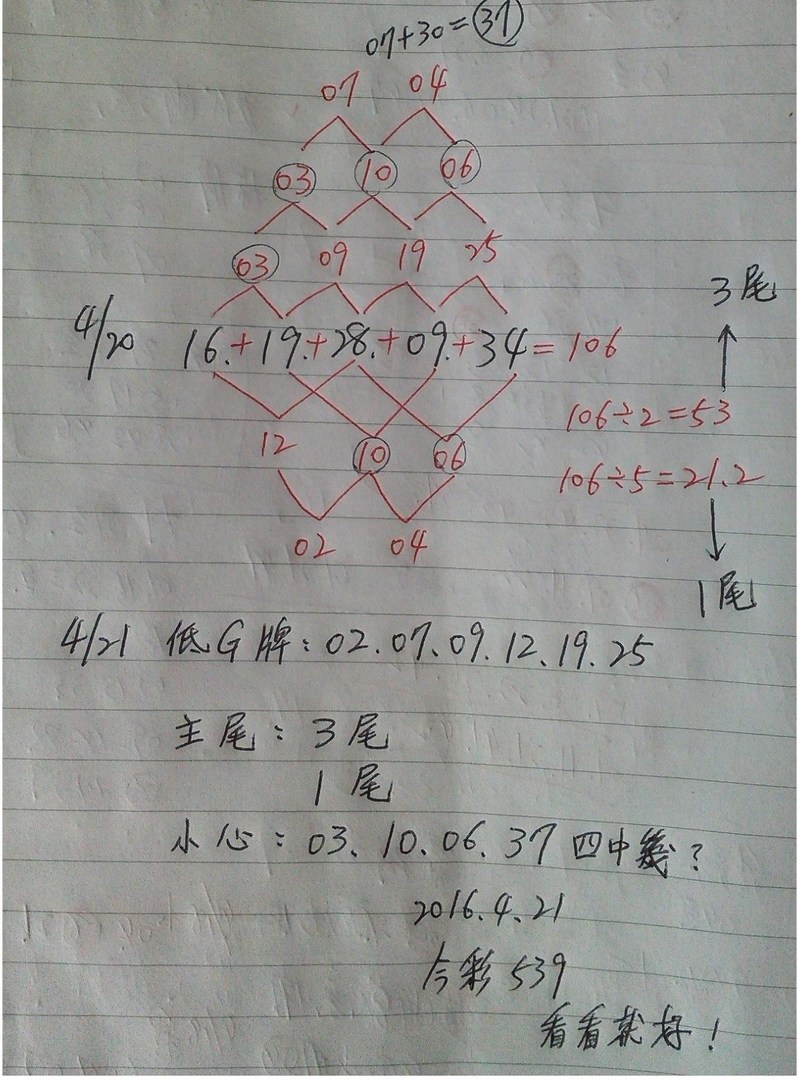 07+30=37
07 04
03 10 06
03 09 19 25
3尾
4/20 16.+19.+28.+09.+34=106
106÷2=53
12 10 06
106÷5=21.2
02 04
1尾
4/21 低G牌:02.07.09.12.19.25
主尾:3尾
1尾
小心:03.10.06.37四中幾?
2016.4.21
今彩539
看看就好!